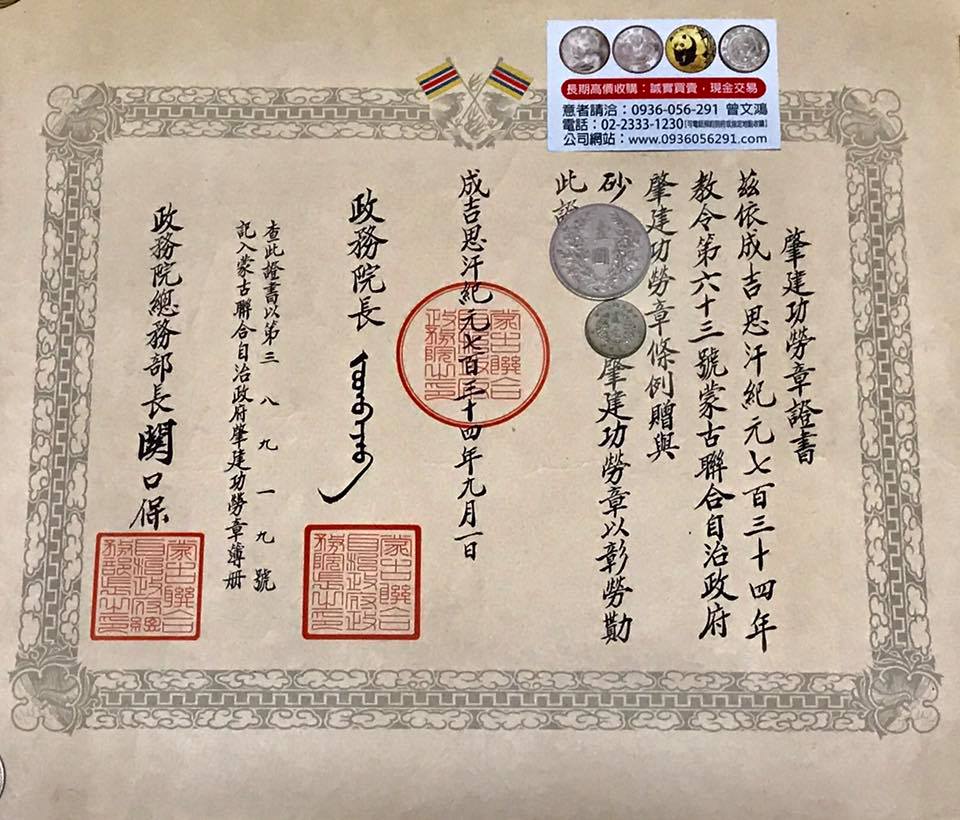 長期高價收購：誠實買賣，現金交易
意者請洽：0936-056-291 曾文鴻
電話：02-2333-1230
公司網站：www.0936056291.com
肇建功勞章證書
茲依成吉思汗紀元七百三十四年
教令第六十三號蒙古聯合自治政府
肇建功勞章條例贈與
砂
肇建功勞章以彰勞勩
此證
壹圓
成吉思汗紀元七百三十四年九月一日
蒙古聯合
自治政府
政務院之印
政務院長
蒙古聯合
自治政府政
務院長之印
查此證書以第三八九一九號
記入蒙古聯合自治政府肇建功勞章簿冊
政務院總務部長関口保
蒙古聯合
自治政府總
務部長之印